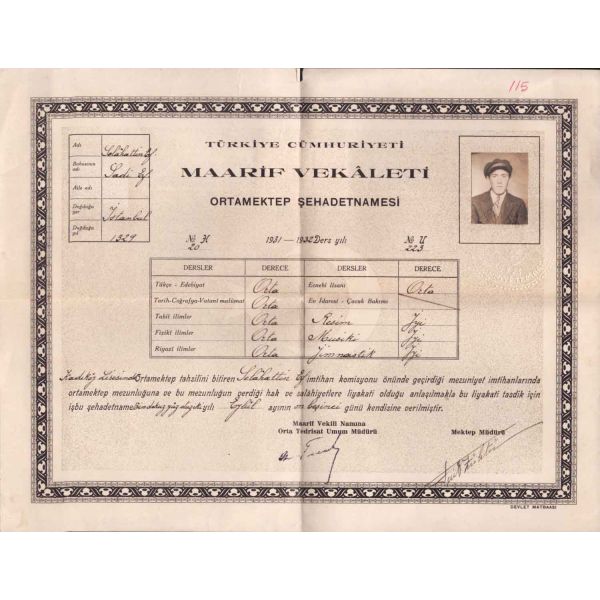 115
TÜRKİYE CÜMHURİYETİ
MAARİF VEKÂLETİ
ORTAMEKTEP ŞEHADETNAMESİ
Adı Selâhattin Ef.
Babasının adı Sadi Ef.
Aile adı
Doğduğu yer İstanbul
Doğduğu yıl 1329
№ H 20
1931 — 1932 Ders yılı
№ U 223
DERSLER DERECE DERSLER DERECE
Türkçe - Edebiyat Orta Ecnebi lisanı Orta
Tarih-Coğrafya-Vatanî malûmat Orta Ev İdaresi - Çocuk Bakımı
Tabiî ilimler Orta Resim İyi
Fizikî ilimler Orta Musiki İyi
Riyazî ilimler Orta Jimnastik İyi
Kadıköy Lisesinde Ortamektep tahsilini bitiren Selâhattin Ef. imtihan komisyonu önünde geçirdiği mezuniyet imtihanlarında
ortamektep mezunluğuna ve bu mezunluğun verdiği hak ve salâhiyetlere liyakati olduğu anlaşılmakla bu liyakati tasdik için
işbu şehadetname yılı Eylül ayının on beşinci günü kendisine verilmiştir.
Maarif Vekili Namına
Orta Tedrisat Umum Müdürü
Mektep Müdürü
DEVLET MATBAASI